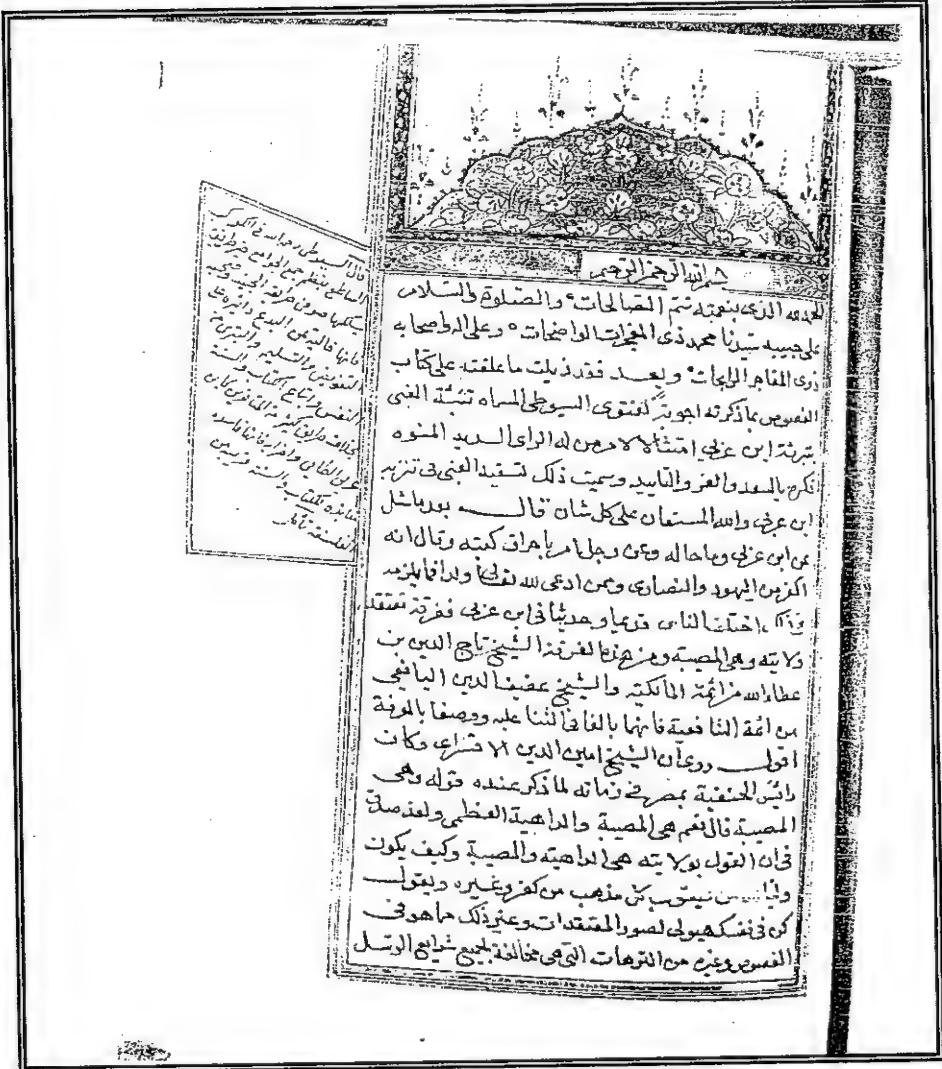 بسم الله الرحمن الرحيم
الحمد لله الذى بنعمته تتم الصالحات والصلوة والسلام
على حبيبه سيدنا محمد ذى المعجزات الواضحات وعلى اله واصحابه
ذوى المفاخر الرايجات وبعد فقد ذيلت ما علقته على كتاب
الفصوص بما ذكرته اجوبة لفتوى السيوطى المسماه تنبئة الغبى
بتبرئة ابن عربى امتثالا لامر من له الراى السديد المنوه
تكرم بالسعد والعز والتاييد وسميت ذلك تسفيه الغبى فى تنزيه
ابن عربى والله المستعان على كل شان قال بعد ما سئل
عن ابن عربى وما حاله وعن رجل امر باحراق كتبه وقال انه
اكفر من اليهود والنصارى ومن ادعى لله تعالى ولدا فما يلزمه
فى ذلك اختلف الناس قديما وحديثا فى ابن عربى ففرقة تعتقد
ولايته وهى المصيبة ومن هذه الفرقة الشيخ تاج الدين بن
عطاء الله من ائمة المالكية والشيخ عفيف الدين اليافعى
من ائمة الشافعية فانهما بالغا فى الثنا عليه ووصفا بالمعرفة
اقول روى ان الشيخ امين الدين الاقصراى وكان
رائيس الحنفية بمصر فى زمانه لما ذكر عنده قوله وهى
المصيبة قال نعم هى المصيبة والداهية العظمى ولقد صدق
فى ان القول بولايته هى الداهية والمصيبة وكيف يكون
وليا من يصوب كل مذهب من كفر وغيره ويقول
كن فى نفسك هيولى لصور المعتقدات وغير ذلك مما هو فى
الفصوص وغيره من الترهات التى هى مخالفة لجميع شرايع الرسل
قال السيوطى رحمه الله فى الكوكب
الساطع بنظم جمع الجوامع خير طريقة
يسلكها صوفى طريقة الجنيد وصحبه
فانها خالية عن البدع دائرة على
التفويض والتسليم والتبرى من
النفس واتباع الكتاب والسنة
بخلاف طريق كثير من المتاخرين كابن
عربى الطائى واضرابه فانها فاسدة
منابذة للكتاب والسنة قريبة من
الفلسفة